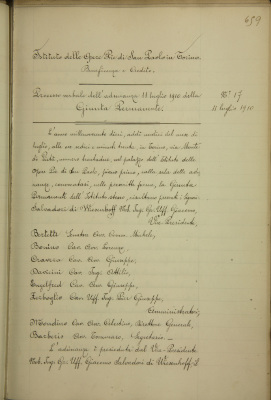 659
Istituto delle Opere Pie di San Paolo in Torino.
Beneficenza e Credito.
Processo verbale dell'adunanza 11 luglio 1910 della
Giunta Permanente.
N.° 17
11 luglio 1910
L'anno millenovecento dieci, addì undici del mese di
luglio, alle ore sedici e minuti trenta, in Torino, via Monte
di Pietà, numero trentadue, nel palazzo dell'Istituto delle
Opere Pie di San Paolo, piano primo, nella sala delle adu-
nanze, convocatasi, nelle prescritte forme, la Giunta
Permanente dell'Istituto stesso, risultano presenti i Signori:
Salvadori di Wiesenhoff Nob. Ing. Gr. Uff. Giacomo,
Vice Presidente,
Bertetti Avv. Michele,
Bonino Cav. Avv. Lorenzo,
Craveri Cav. Avv. Giuseppe,
Cav. Ing. Attilio,
Engelfred Cav. Avv. Giuseppe,
Ferroglio Uff. Ing. Pier Giuseppe,
Amministratori;
Mondino Cav. Avv. Celestino, Direttore Generale,
Barberis Avv. Tommaso, Segretario.
L'adunanza è presieduta dal Vice-Presidente
Nob. Ing. Gr. Uff. Giacomo Salvadori di Wiesenhoff. Il